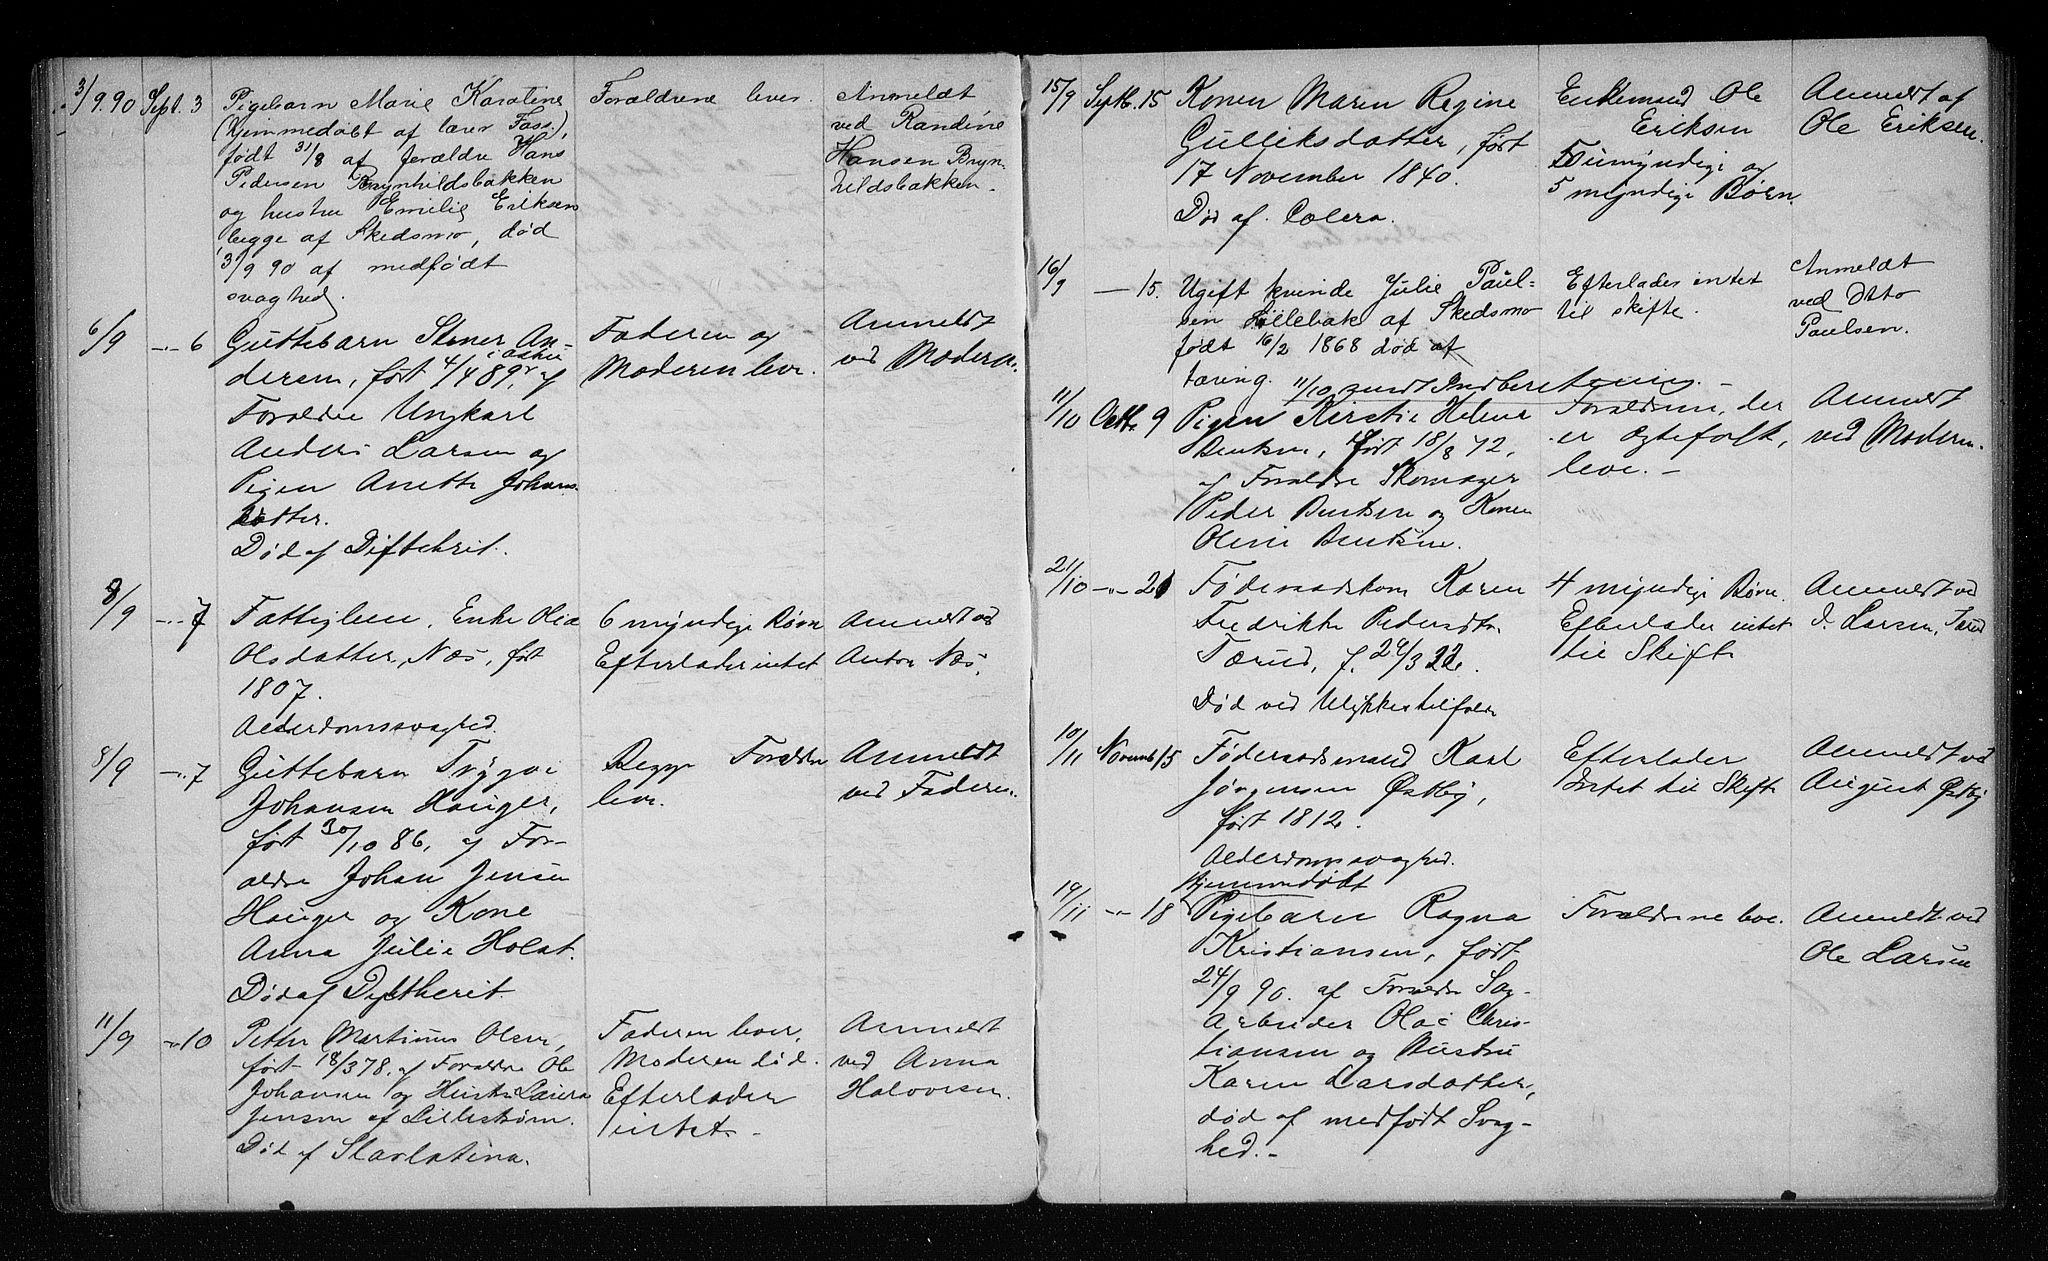 3/9.90 Sept. 3 Pigebarn Marie Karoline Forældrene lever. Anmeldt
(hjemmedøbt af lærer Foss), ved Randine
født 31/8 af forældre Hans Hansen Bryn-
Pedersen Brynhildsbakken hildsbakken.
og hustru Emilie Eriksen
begge af Skedsmo, død
3/9 90 af medfødt
svaghed.
6/9 -"- 6 Guttebarn Stener An- Faderen og Anmeldt
dersen, født 4/4 89, af Moderen lever. ved Moderen.
Forældre Ungkarl
Anders Larsen og
Pigen Anette Johans-
datter.
Død af Difteherit.
8/9 -"- 7 Fattiglem, Enke Olia 6 myndige Børn Anmeldt ved
Olsdatter, Næs, født Efterlader intet Anton Næs.
1807.
Alderdomssvaghed.
8/9 -"- 7 Guttebarn Trygve Begge Forældre Anmeldt
Johansen Hauger, lever. ved Faderen.
født 30/10 86, af For-
ældre Johan Jensen
Hauger og Kone
Anna Julie Holst.
Død af Dyftherit.
11/9 -"- 10 Petter Martinius Olsen, Faderen lever, Anmeldt
født 18/3 78. af Forældre Ole Moderen død. ved Anna
Johansen og Hustru Laura Efterlader Halvorsen.
Jensen af Lillestrøm. intet. -
Død af Skarlatina.
15/9 Septb. 15 Konen Maren Regine Enkemand Ole Anmeldt af
Gulliksdatter, født Eriksen Ole Eriksen.
17 November 1840. umyndige og
Død af Colera. 5 myndige Børn
16/9 — 15. Ugift kvinde Julie Paul- Efterlades intet Anmeldt
sen Lillebak af Skedsmo til skifte. ved Otto
født 16/2 1868 død af Paulsen.
tæring. 11/10 sendt Indberetning. -
11/10 Octb. 9 Pigen Kirstie Helene Forældrene, der Anmeldt
Bentsen, født 18/8 72, er Ægtefolk, ved Moderen.
af Forældre Skomager leve. -
Peder Bentsen og Konen
Oline Bentsen.
21/10 -"- 21 Føderaadskone Karen 4 myndige Børn. Anmeldt ved
Fredrikke Pedersdtr. Efterlader intet J. Larsen, Tærud
Tærud, f. 24/3 22. til Skifte
Død ved Ulykkestilfælde
10/11 Novemb. 5 Føderaadsmand Karl Efterlader Anmeldt ved
Jørgensen Østby, Intet til Skifte August Østby
født 1812.
Alderdomssvaghed.
Hjemmedøbt
19/11 -"- 18 Pigebarn Ragna Forældrene leve. Anmeldt ved
Kristiansen, født Ole Larsen
24/9 90. af Forældre Sag-
Arbeider Olai Chris-
tiansen og Hustru
Karen Larsdatter,
død af medfødt Svag-
hed. -